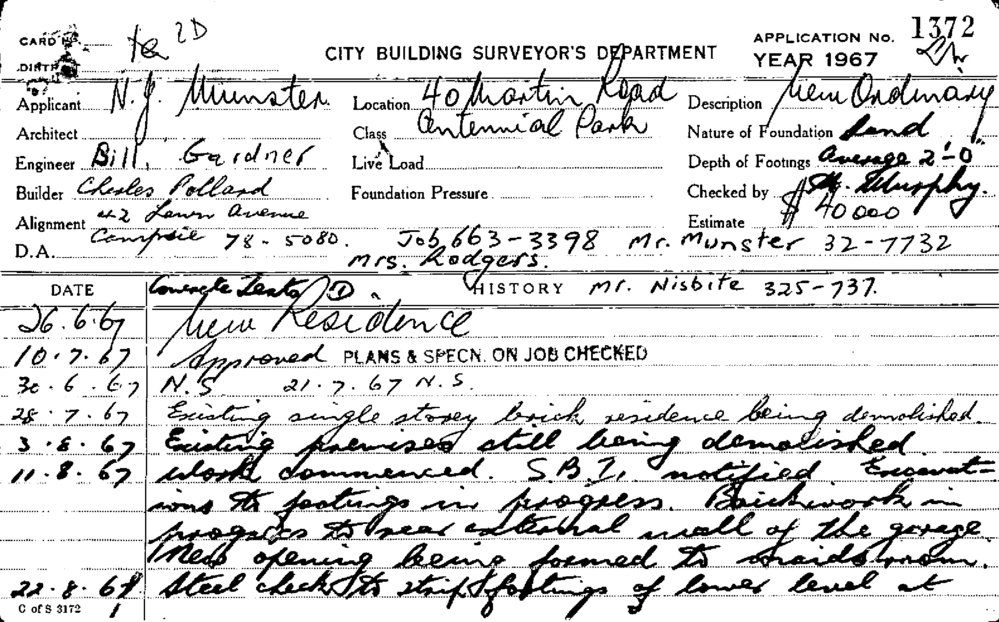 CARD No. 2D
CITY BUILDING SURVEYOR'S DEPARTMENT
APPLICATION No. 1372
DISTR
YEAR 1967
Applicant N. J. Munster Location 40 Martin Road Description New Ordinary
Architect Class Centennial Park Nature of Foundation Sand
Engineer Bill. Gardner Live Load Depth of Footings Average 2'-0"
Builder Charles Pollard Foundation Pressure Checked by Murphy.
Alignment 42 Lawn Avenue Estimate $ 40000
D.A. Campsie 78-5080. Job 663-3398 Mr. Munster 32-7732
Mrs. Rodgers.
DATE Concrete Tests 1 HISTORY Mr. Nisbite 325-737.
26.6.67 New Residence
10.7.67 Approved PLANS & SPECN. ON JOB CHECKED
30.6.67 N.S 21.7.67 N.S.
28.7.67 Existing single storey brick residence being demolished.
3.8.67 Existing premises still being demolished.
11.8.67 Work commenced. S.B.I. notified Excavat=
ions to footings in progress. Brickwork in
progress to rear external wall of the garage
New opening being formed to maids room.
22.8.67 Steel check to strip footings of lower level at
C of S 3172 1